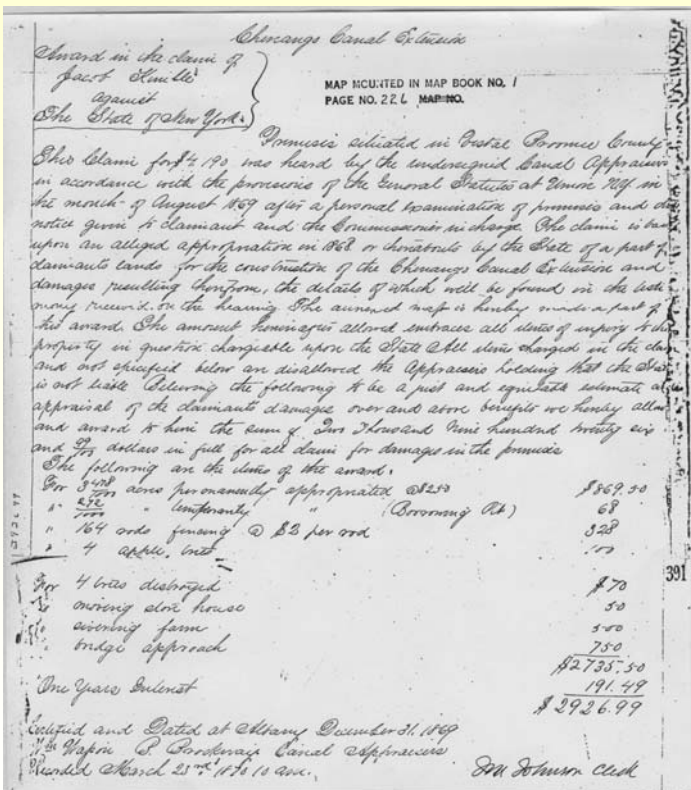 Chenango Canal Extension
Award in the claim of
Jacob Kimble
against
The State of New York.
MAP MOUNTED IN MAP BOOK NO. 1
PAGE NO. 226 MAP NO.
Premises situated in Vestal Broome County
This Claim for $4190 was heard by the undersigned Canal Appraisers
in accordance with the provisions of the General Statutes at Union NY in
the month of August 1869 after a personal examination of premises and due
notice given to claimant and the Commissioner in charge. The claim is based
upon an alleged appropriation in 1868 or thereabouts by the State of a part of
claimants lands for the construction of the Chenango Canal Extension and
damages resulting therefrom, the details of which will be found in the testi
mony received on the hearing The annexed map is hereby made a part of
this award The amount hereinafter allowed embraces all items of injury to the
property in question chargeable upon the State All items charged in the claim
and not specified below are disallowed the Appraisers holding that the State
is not liable Believing the following to be a just and equitable estimate and
appraisal of the claimants damages over and above benefits we hereby allow
and award to him the sum of Two Thousand Nine hundred twenty six
and 99/100 dollars in full for all claim for damages in the premises
The following are the items of the award.
For 3 478/1000 acres permanently appropriated @ $250 $869.50
" 272/1000 " temporarily " (Borrowing Pit) 68
" 164 rods fencing @ $2 per rod 328
" 4 apple trees 100
For 4 trees destroyed $70
" moving house 50
" severing farm 500
" bridge approach 750
$2735.50
One Years Interest 191.49
$2926.99
Certified and Dated at Albany December 31. 1869
Canal Appraisers
Recorded March 23rd 1870 10 am.
Johnson Clerk
391